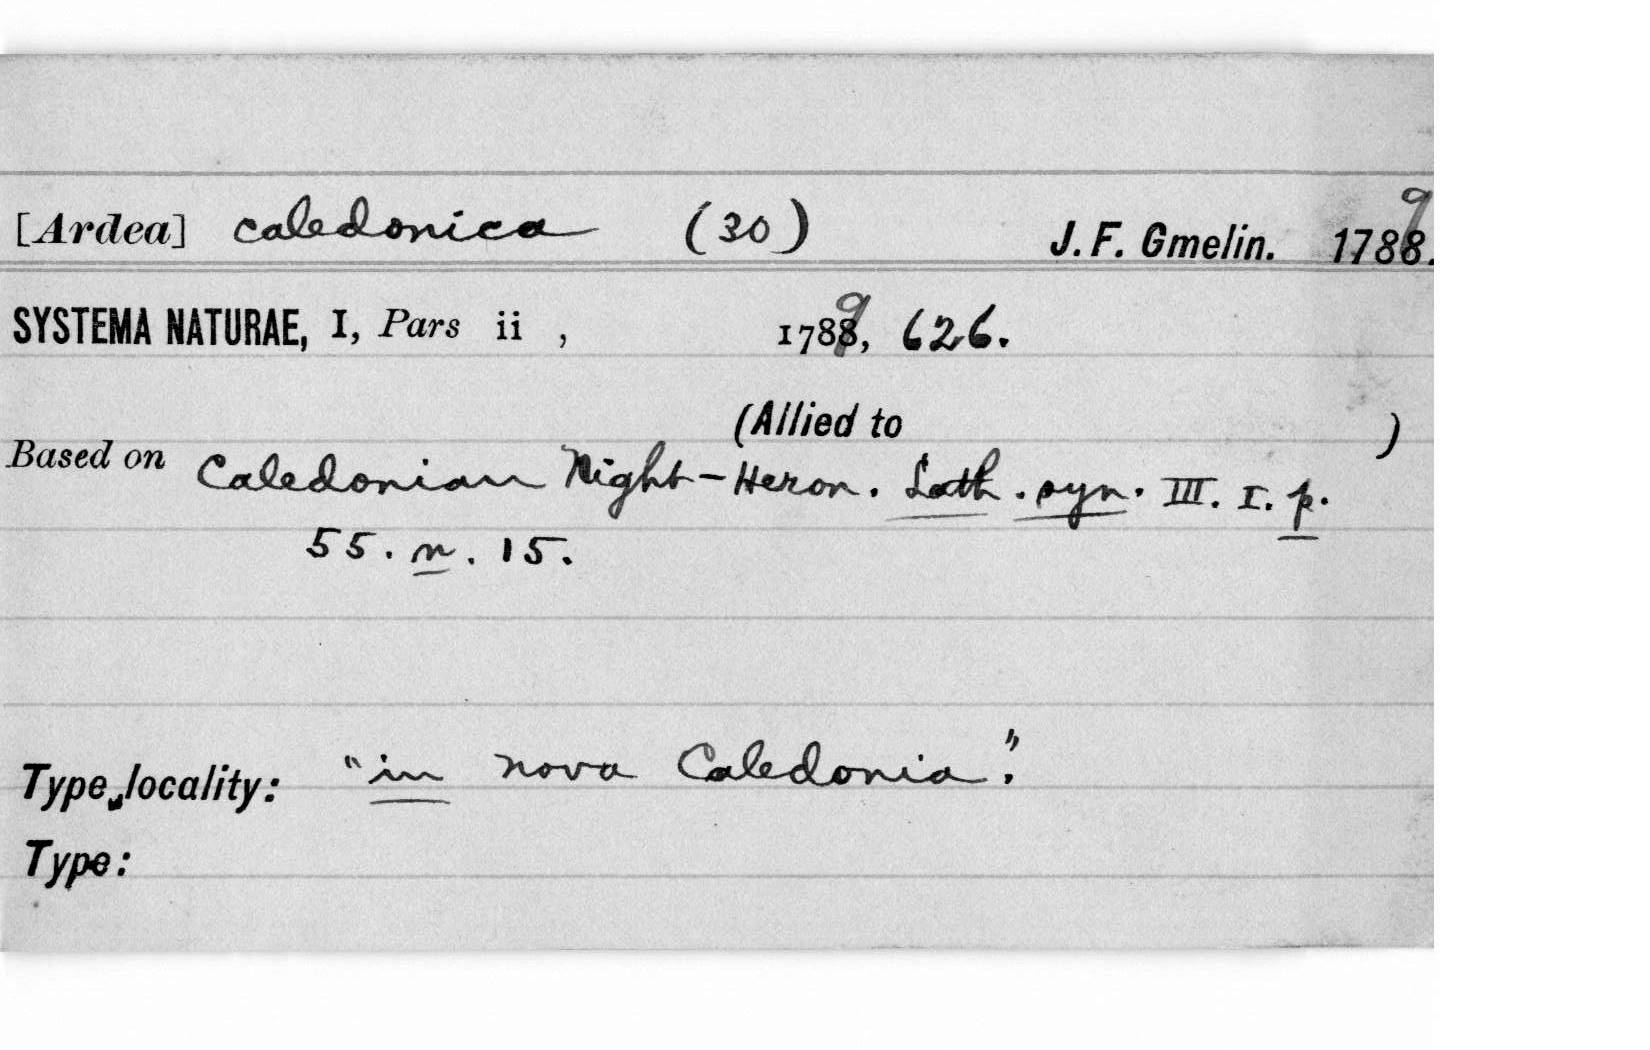 [Ardea] caledonica (30) J. F. Gmelin. 1789.
SYSTEMA NATURAE, I, Pars ii , 1789, 626.
(Allied to )
Based on Caledonian Night-Heron. Lath. syn. III. I. p.
55. n. 15.
Type locality: "in nova Caledonia".
Type: